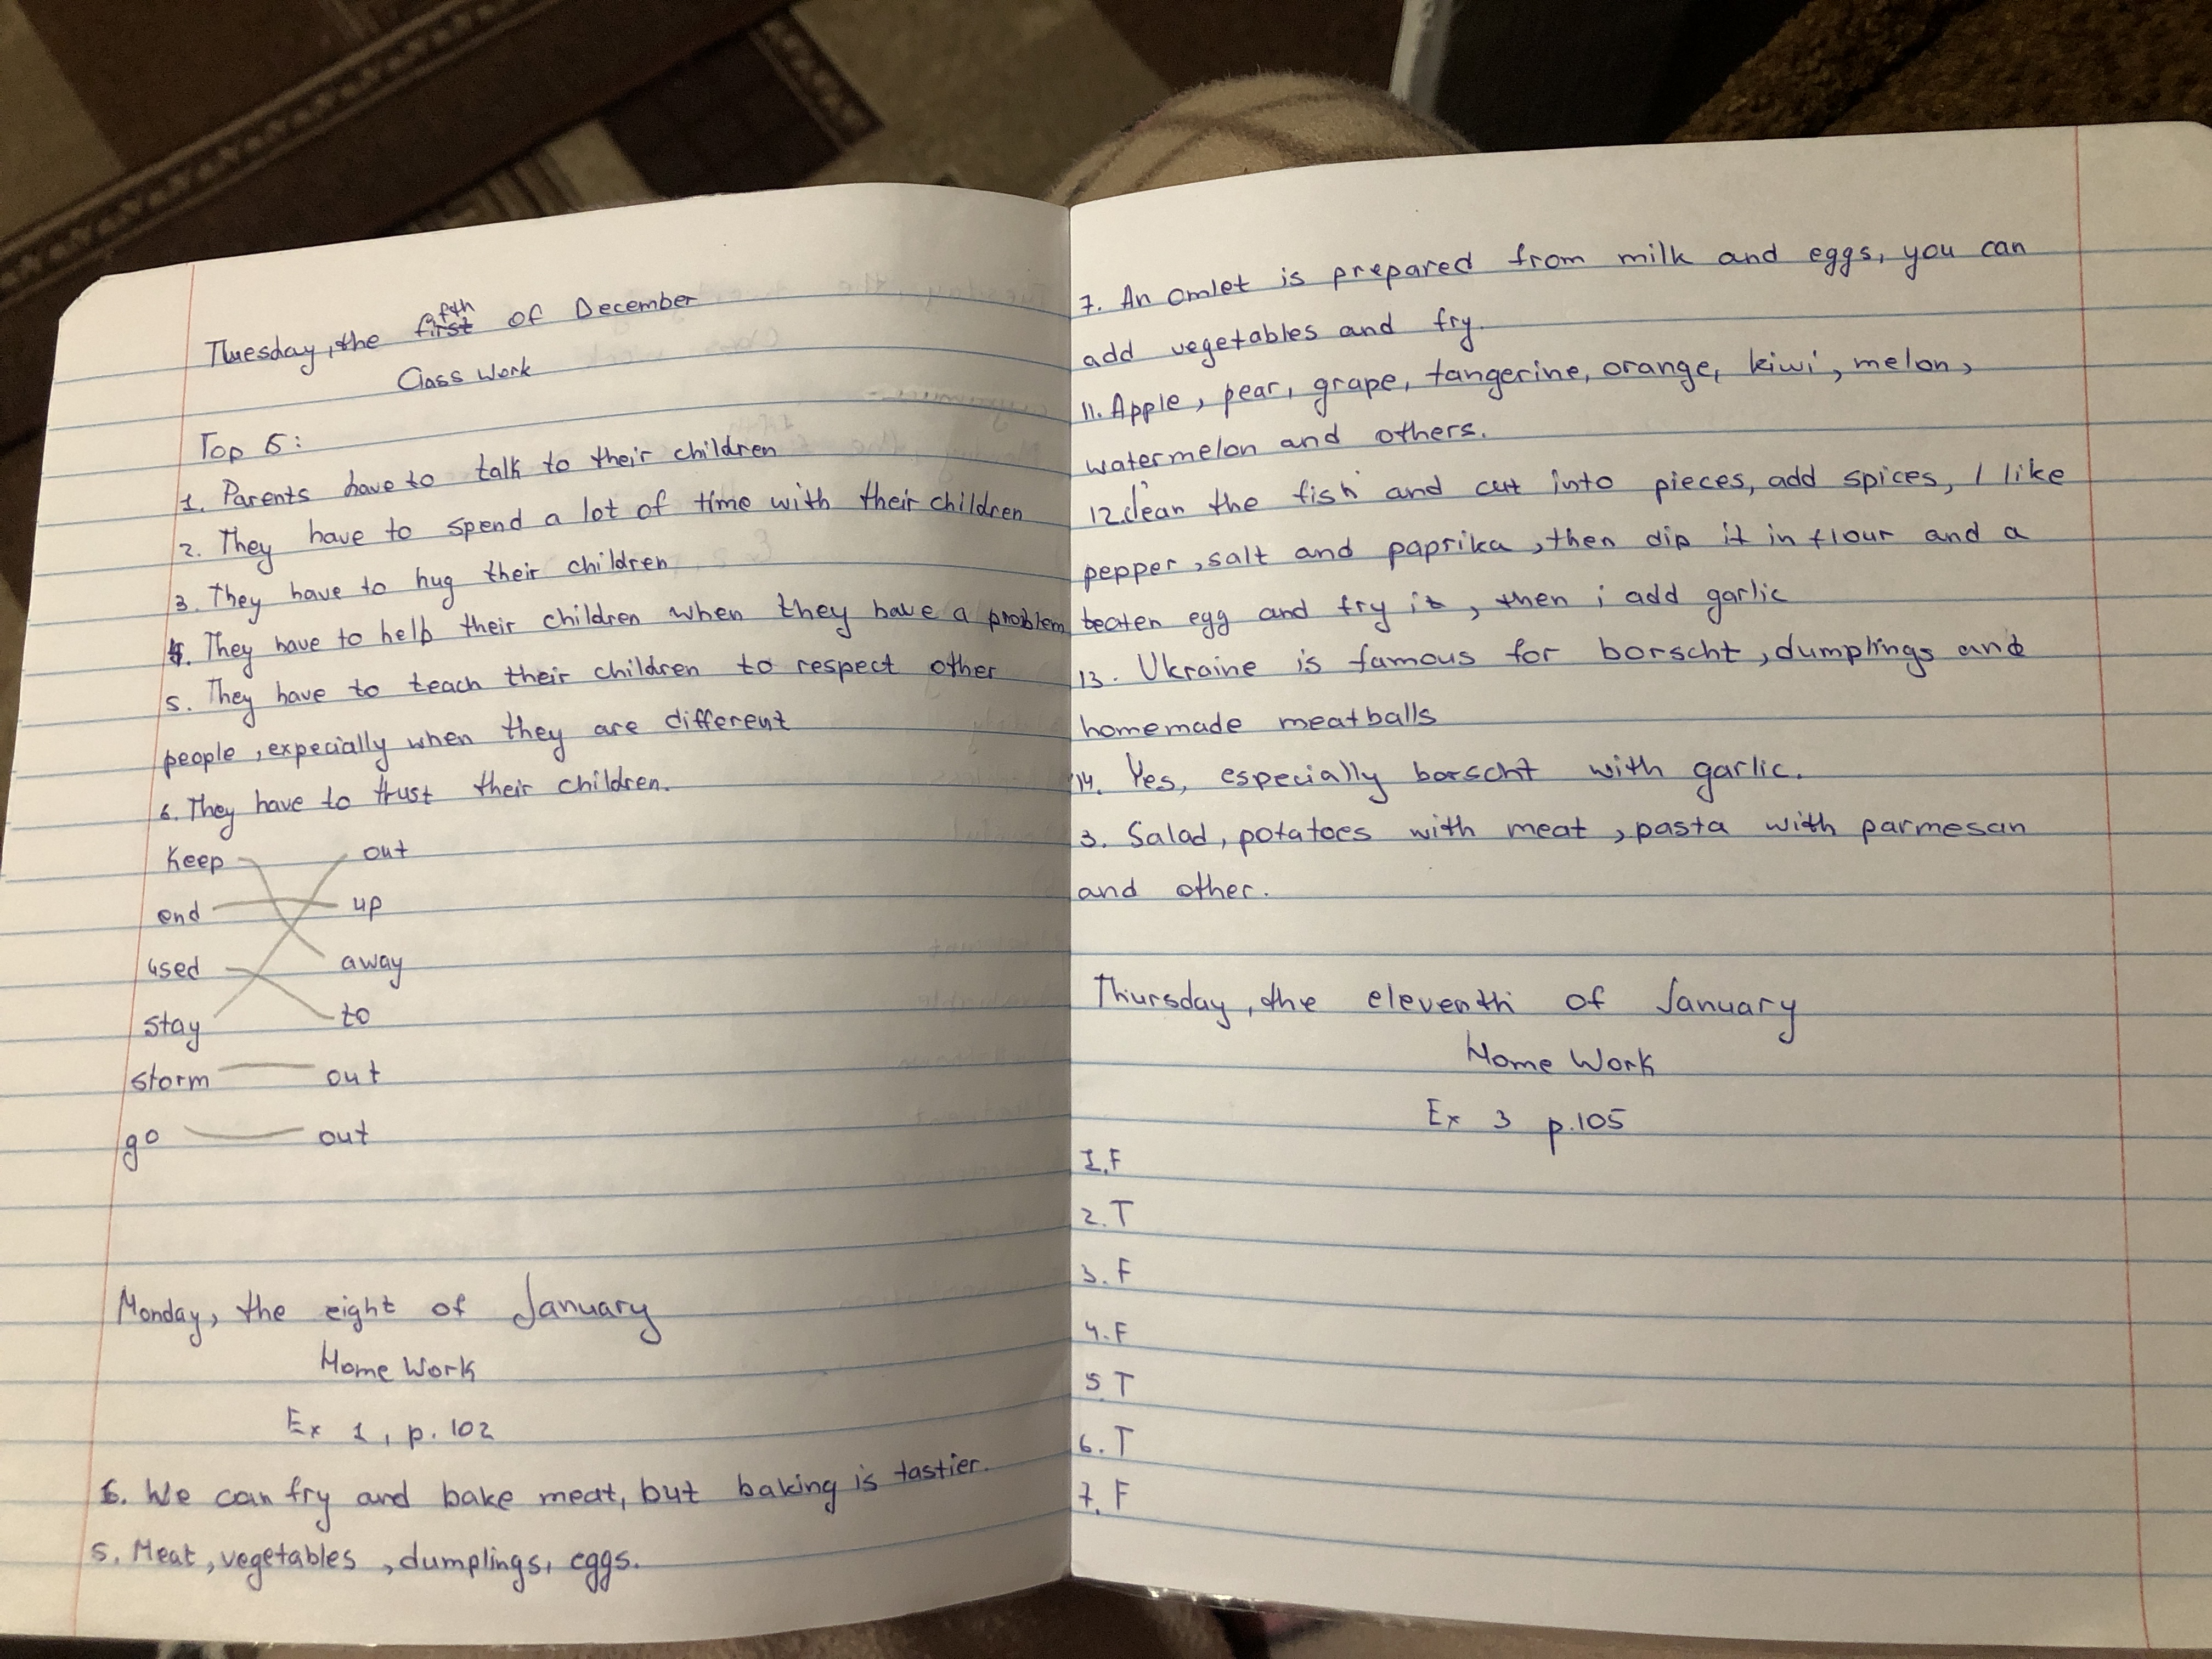 Tuesday, the fifth of December
Class Work
Top 5:
1. Parents have to talk to their children
2. They have to spend a lot of time with their children
3. They have to hug their children
4. They have to help their children when they have a problem
5. They have to teach their children to respect other
people, expecially when they are different
6. They have to trust their children.
keep out
end up
used away
stay to
storm out
go out
Monday, the eight of January
Home Work
Ex 1, p. 102
6. We can fry and bake meat, but baking is tastier.
5. Meat, vegetables, dumplings, eggs.
7. An omlet is prepared from milk and eggs, you can
add vegetables and fry.
11. Apple, pear, grape, tangerine, orange, kiwi, melon,
watermelon and others.
12. Clean the fish and cut into pieces, add spices, I like
pepper, salt and paprika, then dip it in flour and a
beaten egg and fry it, then i add garlic
13. Ukraine is famous for borscht, dumplings and
homemade meatballs
14. Yes, especially borscht with garlic.
3. Salad, potatoes with meat, pasta with parmesan
and other.
Thursday, the eleventh of January
Home Work
Ex 3 p.105
1. F
2. T
3. F
4. F
5. T
6. T
7. F